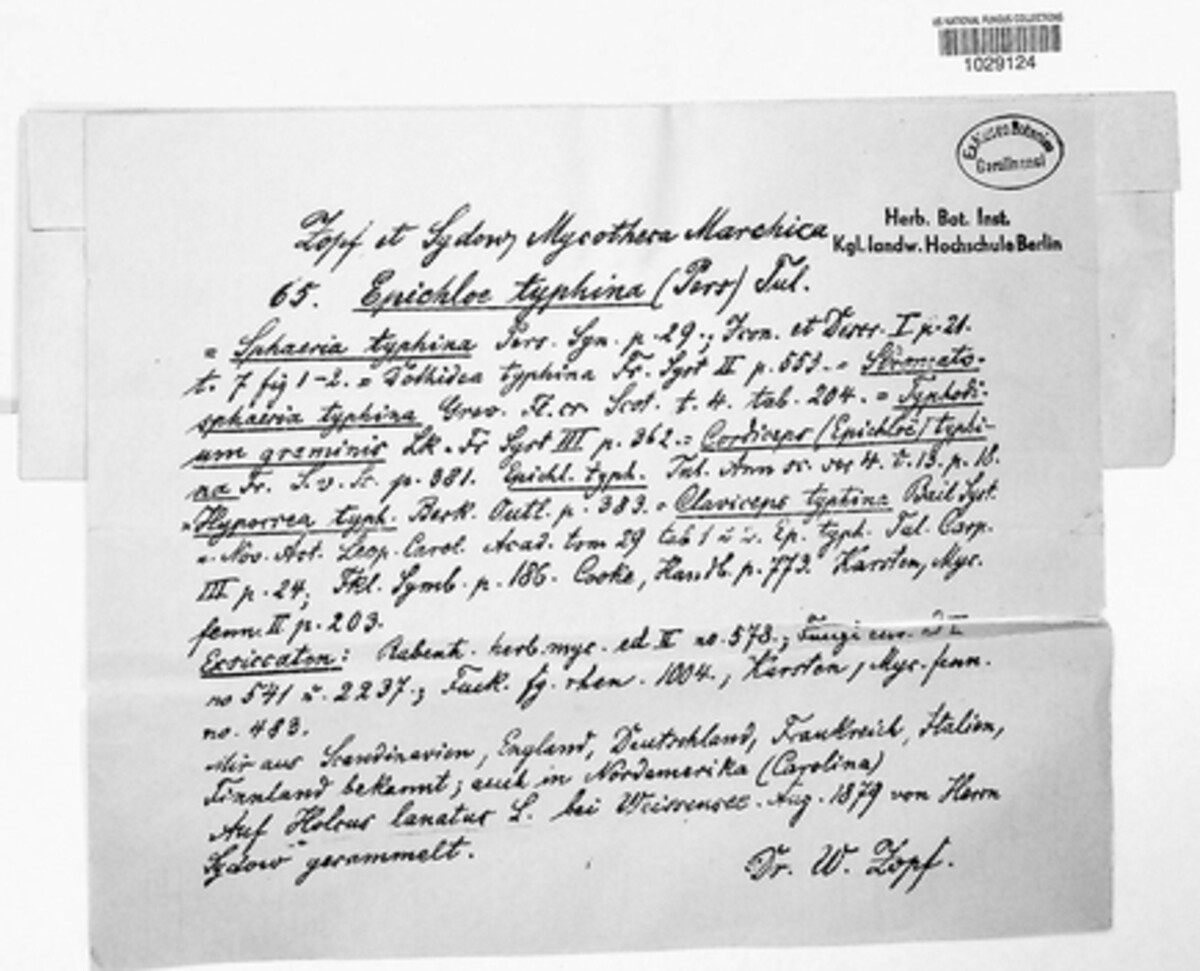 US NATIONAL FUNGUS COLLECTIONS
1029124
Ex Museo Botanico
Herb. Bot. Inst.
Kgl. landw. Hochschule Berlin
Zopf et Sydow, Mycotheca Marchica
65. Epichloe typhina (Pers) Tul.
= Sphaeria typhina Pers. Syn. p. 29.; Icon. et Descr. I p. 21.
t. 7 fig 1-2. = Dothidea typhina Fr. Syst II p. 553. = Stromato-
sphaeria typhina Grev. Fl. cr. Scot. t. 4. tab. 204. = Typhodi-
um graminis Lk. Fr Syst III p. 362. = Cordiceps (Epichloë) typhi-
na Fr. S. v. Sc. p. 381. Epichl. typh. Tul. Ann sc. ser 4. t. 13. p. 18.
= Hypocrea typh. Berk. Outl. p. 383. = Claviceps typhina Bail Syst.
Nov. Act. Leop. Carol. Acad. tom 29 tab 1 Ep. typh. Tul. Carp.
III p. 24; Fkl. Symb. p. 186. Cooke, Handb. p. 773. Karsten, Myc.
fenn. II p. 203.
Exsiccaten: Rabenh. herb. myc. ed II no. 573.; Fungi eur.
no 541 u. 2237.; Fuck. fg. rhen. 1004., Karsten, Myc. fenn.
no. 483.
Mir aus Scandinavien, England, Deutschland, Frankreich, Italien,
Finnland bekannt; auch in Nordamerika (Carolina)
Auf Holcus lanatus L. bei Weissensee. Aug. 1879 von Herrn
Sydow gesammelt.
Dr. W. Zopf.